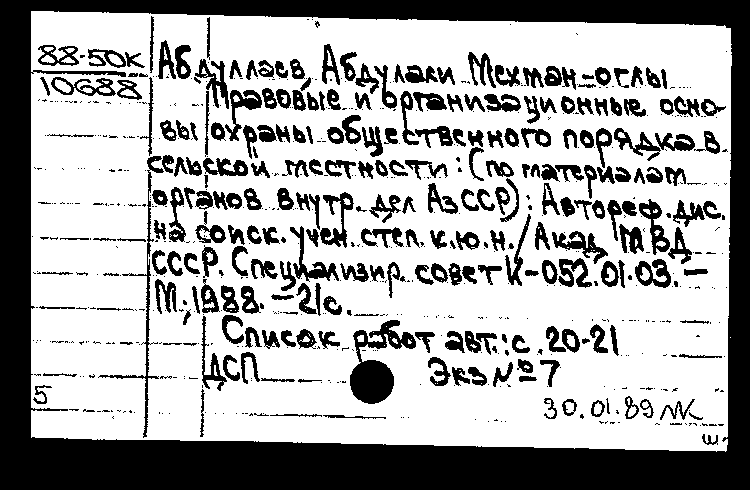 88-50К
10688
Абдуллаев, Абдулали Мехман-оглы
Правовые и организационные осно-
вы охраны общественного порядка в
сельской местности: (по материалам
органов внутр. дел АзССР): Автореф. дис.
на соиск. учен. степ. к.ю.н. / Акад. МВД
СССР. Специализир. совет К-052.01.03. –
М., 1988. – 21с.
Список работ авт.: с. 20-21
ДСП Экз № 7
5
30.01.89
ш.